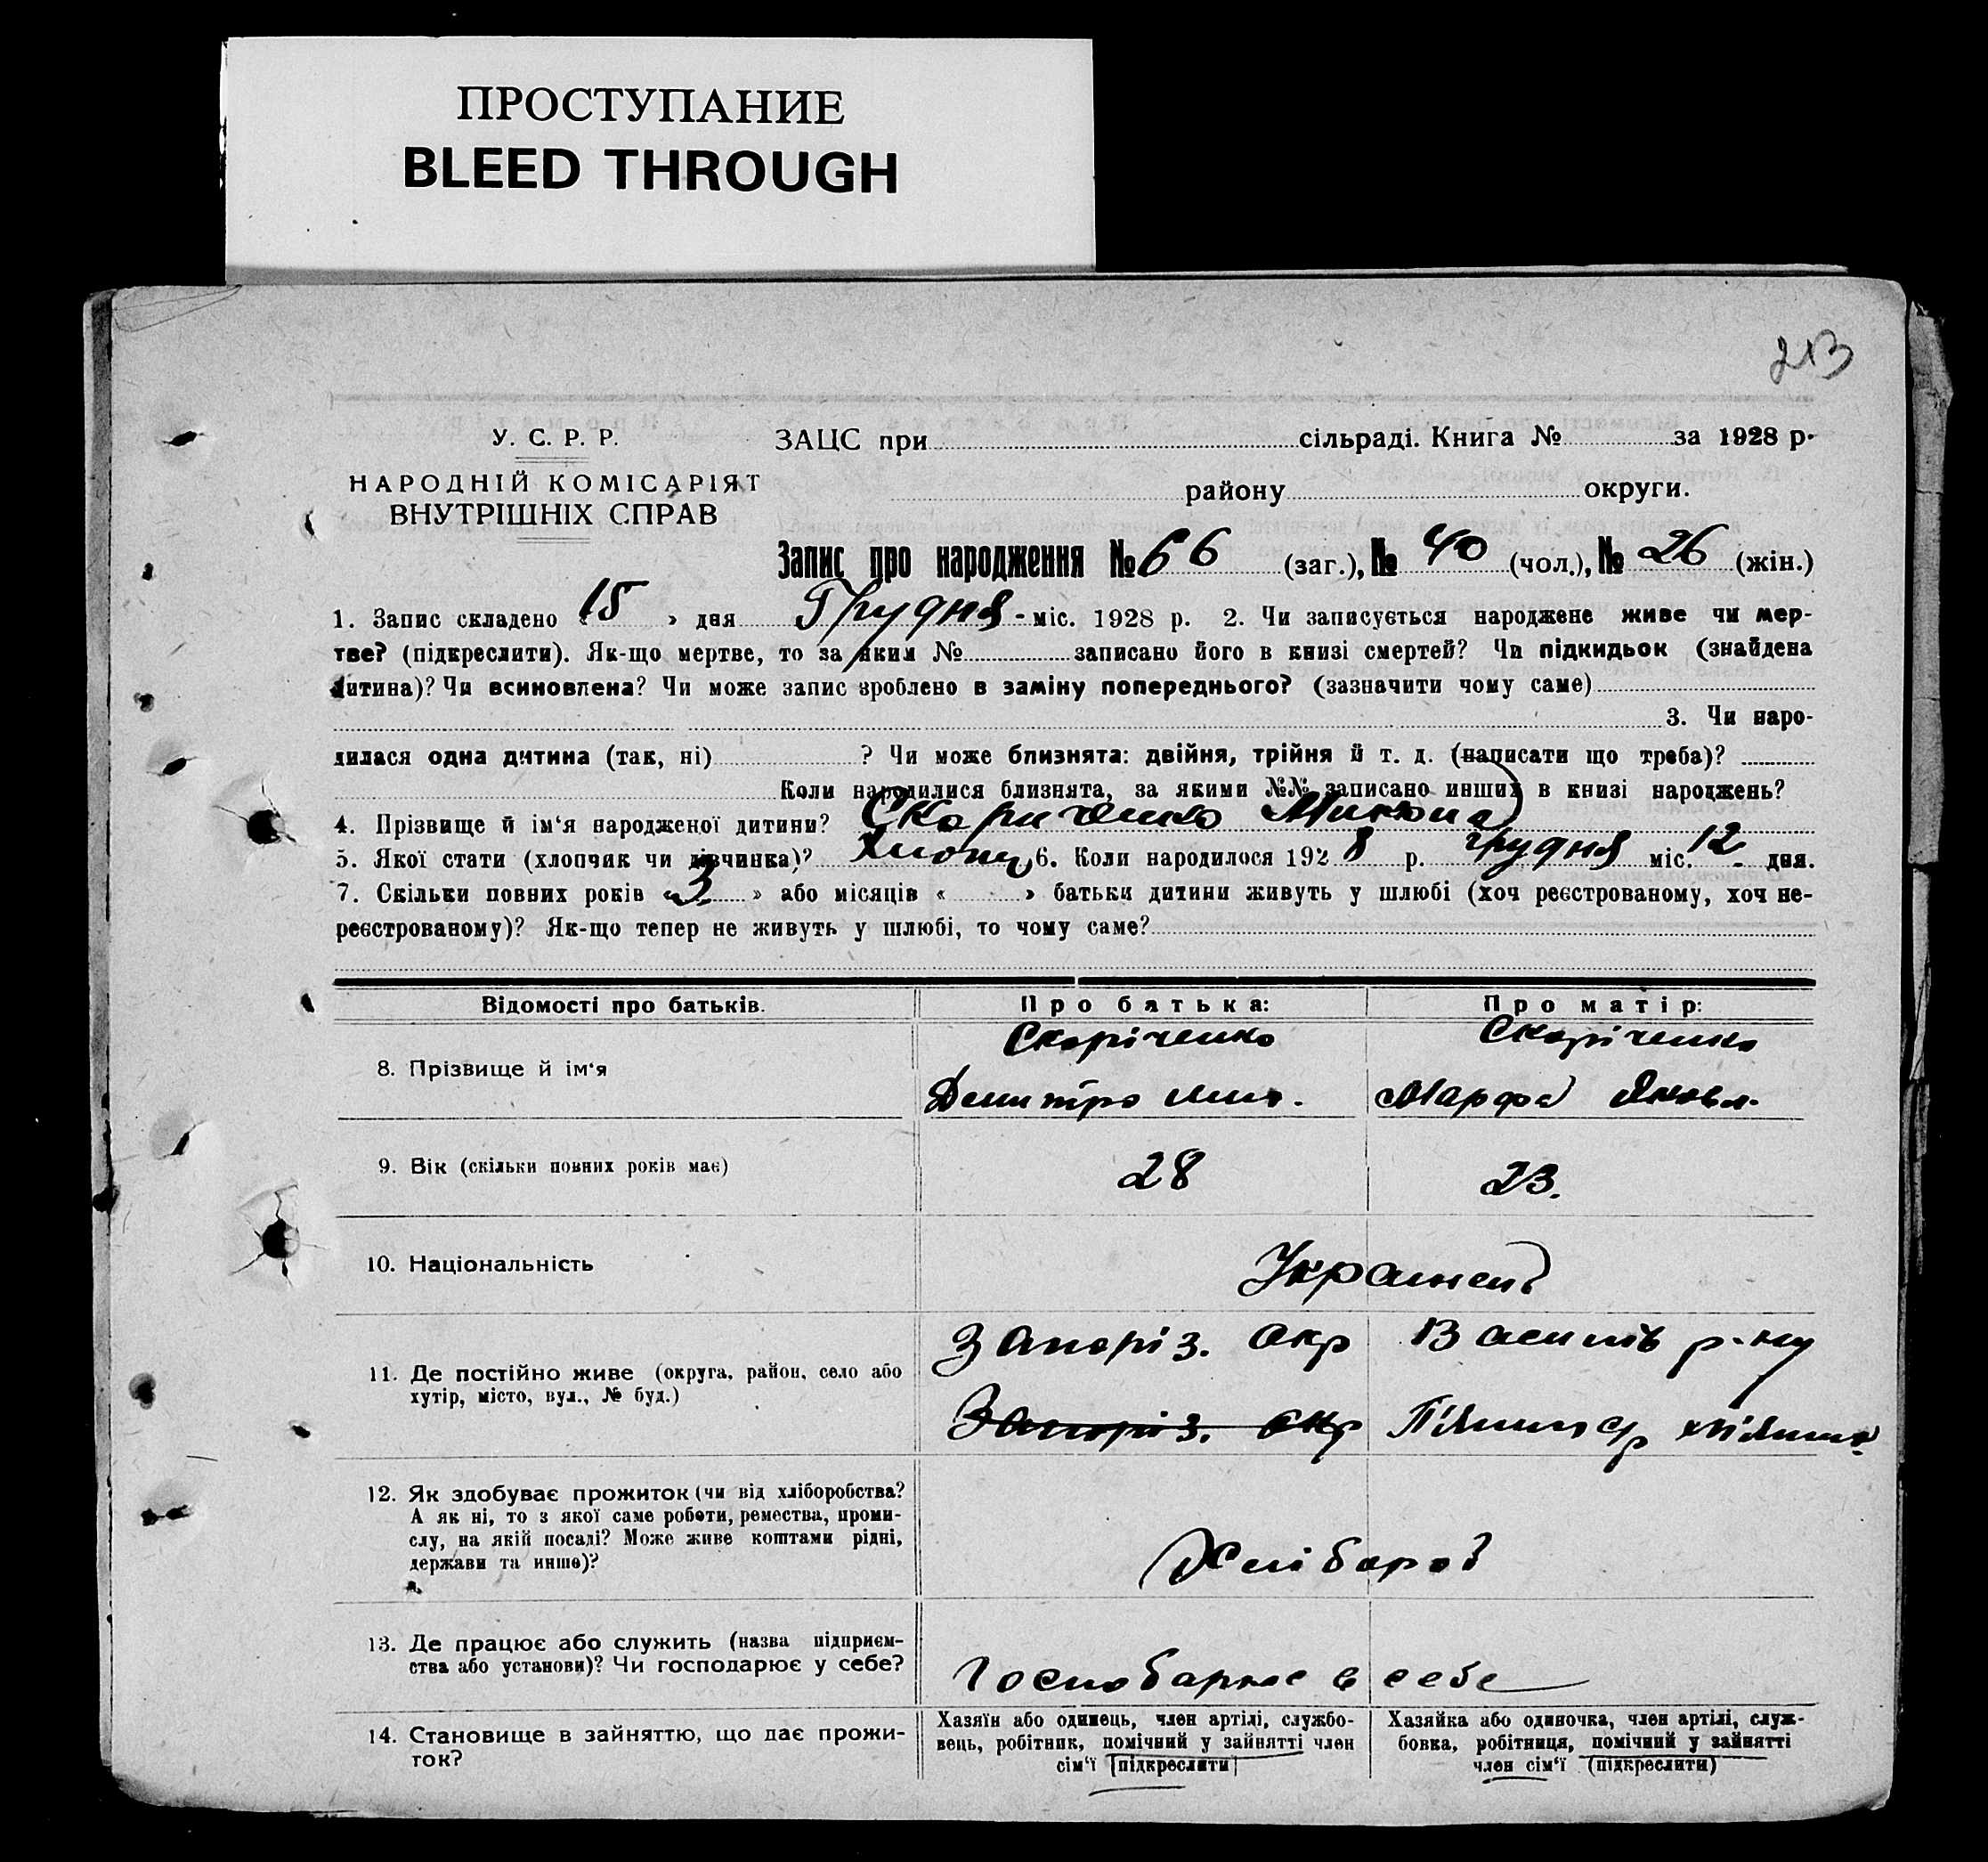 ПРОСТУПАНИЕ
BLEED THROUGH
213
У. С. Р. Р.
НАРОДНІЙ КОМІСАРІЯТ
ВНУТРІШНІХ СПРАВ
ЗАЦС при сільраді. Книга № за 1928 р.
району округи.
Запис про народження № 66 (заг.), № 40 (чол.), № 26 (жін.)
1. Запис складено « 15 » дня Грудня міс. 1928 р. 2. Чи записується народжене живе чи мер-
тве? (підкреслити). Як-що мертве, то за яким № записано його в книзі смертей? Чи підкидьок (знайдена
дитина)? Чи всиновлена? Чи може запис зроблено в заміну попереднього? (зазначити чому саме)
3. Чи наро-
дилася одна дитина (так, ні) ? Чи може близнята: двійня, трійня й т. д. (написати що треба)?
Коли народилися близнята, за якими №№ записано инших в книзі народжень?
4. Прізвище й ім'я народженої дитини? Скориченко Микола
5. Якої стати (хлопчик чи дівчинка)? Хлопц 6. Коли народилося 1928 р. грудня міс. 12 дня.
7. Скільки повних років « 3 » або місяців « » батьки дитини живуть у шлюбі (хоч реєстрованому, хоч не-
реєстрованому)? Як-що тепер не живуть у шлюбі, то чому саме?
Відомості про батьків. Про батька: Про матір:
8. Прізвище й ім'я
Скоріченко Скоріченко
Демитро Мих. Марфа Яковл.
9. Вік (скільки повних років має) 28 23.
10. Національність Украінец
11. Де постійно живе (округа, район, село або
хутір, місто, вул., № буд.)
Запоріз. Окр Василів р-ну
Запоріз. окр
12. Як здобуває прожиток (чи від хліборобства?
А як ні, то з якої саме роботи, ремества, проми-
слу, на якій посаді? Може живе коштами рідні,
держави та инше)?
Хлібороб
13. Де працює або служить (назва підприєм-
ства або установи)? Чи господарює у себе?
Господарює в себе
14. Становище в зайняттю, що дає прожи-
ток?
Хазяїн або одинець, член артілі, службо-
вець, робітник, помічний у зайнятті член
сім'ї (підкреслити)
Хазяйка або одиночка, член артілі, служ-
бовка, робітниця, помічний у зайнятті
член сім'ї (підкреслити)